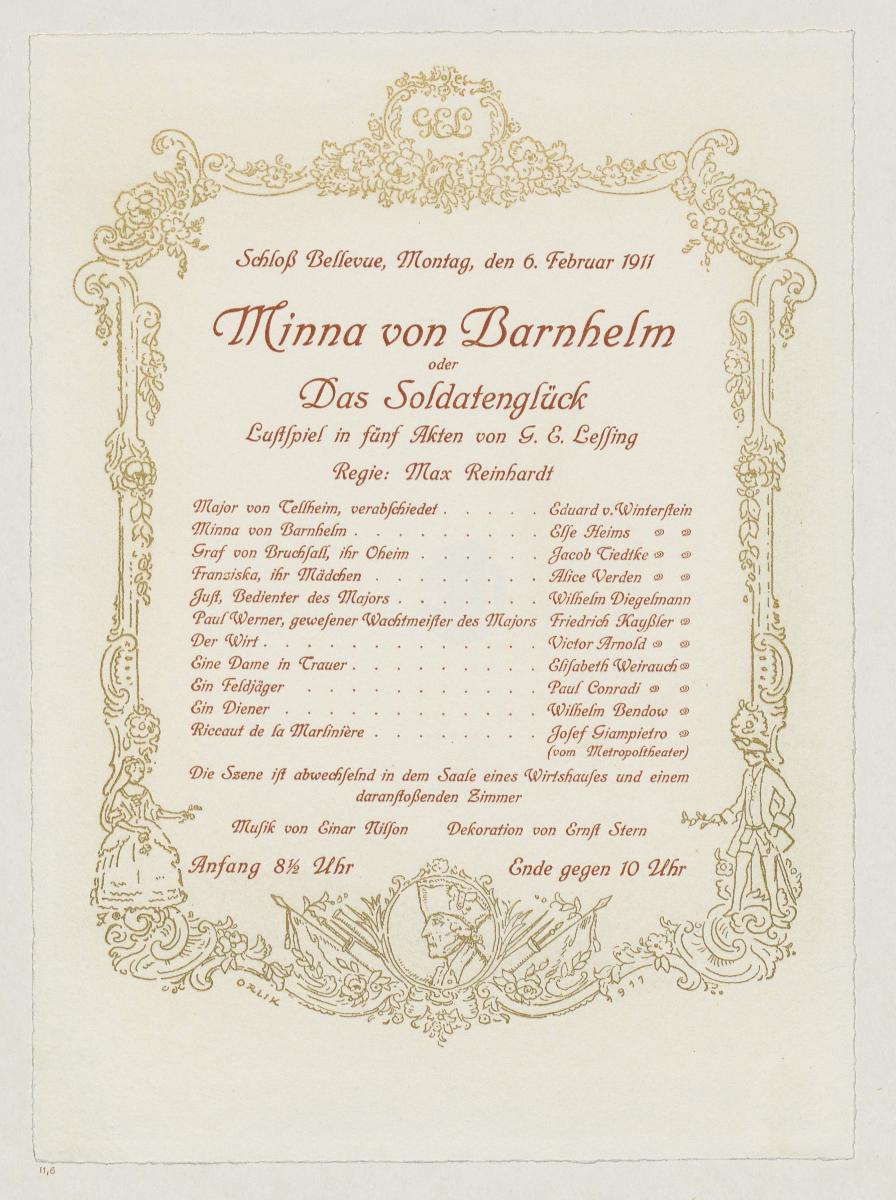 GEL
Schloß Bellevue, Montag, den 6. Februar 1911
Minna von Barnhelm
oder
Das Soldatenglück
Luſtſpiel in fünf Akten von G. E. Leſſing
Regie: Max Reinhardt
Major von Tellheim, verabſchiedet . . . . . Eduard v. Winterſtein
Minna von Barnhelm . . . . . . . . . Elſe Heims
Graf von Bruchſall, ihr Oheim . . . . . . Jacob Tiedtke
Franziska, ihr Mädchen . . . . . . . . Alice Verden
Juſt, Bedienter des Majors . . . . . . . Wilhelm Diegelmann
Paul Werner, geweſener Wachtmeiſter des Majors Friedrich Kayßler
Der Wirt . . . . . . . . . . . . . Victor Arnold
Eine Dame in Trauer . . . . . . . . . Eliſabeth Weirauch
Ein Feldjäger . . . . . . . . . . . Paul Conradi
Ein Diener . . . . . . . . . . . . Wilhelm Bendow
Riccaut de la Marlinière . . . . . . . . Joſef Giampietro
(vom Metropoltheater)
Die Szene iſt abwechſelnd in dem Saale eines Wirtshauſes und einem
daranſtoßenden Zimmer
Muſik von Einar Nilſon Dekoration von Ernſt Stern
Anfang 8½ Uhr Ende gegen 10 Uhr
ORLIK 1911
11,6